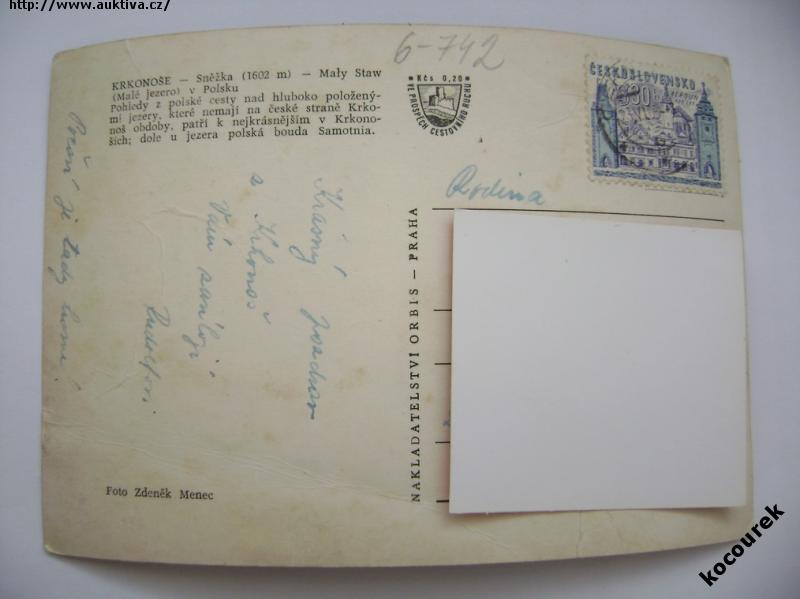 http://www.auktiva.cz/
6-742
KRKONOŠE — Sněžka (1602 m) — Mały Staw
(Malé jezero) v Polsku
Pohledy z polské cesty nad hluboko položený-
mi jezery, které nemají na české straně Krko-
noš obdoby, patří k nejkrásnějším v Krkono-
ších; dole u jezera polská bouda Samotnia.
Kčs 0,20
VE PROSPĚCH CESTOVNÍHO RUCHU
ČESKOSLOVENSKO
Krásný pozdrav
z Krkonoš
Vám zasílají
je tady
Rodina
NAKLADATELSTVÍ ORBIS — PRAHA
Foto Zdeněk Menec
kocourek